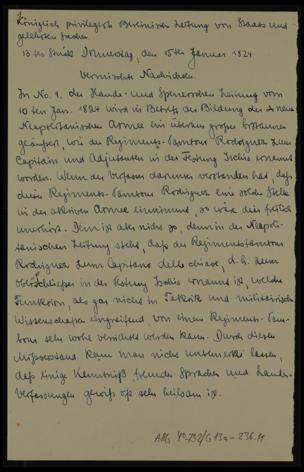 Königlich privilegirte Berlinische Zeitung von Staats und
gelehrten Sachen
13tes Stück Donnerstag, den 15ten Januar 1824
Vermischte Nachrichten.
In No. 8. der Haude- und Spenerschen Zeitung vom
10ten Jan. 1824 wird in Betreff der Bildung der neuen
Neapolitanischen Armee ein überaus großes Erstaunen
geäußert, wie der Regiments-Tambour Rodriguez zum
Capitain und Adjutanten in der Festung Ischia ernannt
worden. Wenn der Verfasser darunter verstanden hat, daß
dieser Regiments-Tambour Rodriguez eine solche Stelle
in der aktiven Armee einnimmt, so wäre dies freilich
unerhört. Dem ist aber nicht so, denn in der Neapoli-
tanischen Zeitung steht, daß der Regimentstambour
Rodriguez zum Capitano delle chiave, d. h. zum
Oberschließer in der Festung Ischia ernannt ist, welche
Funktion, als gar nicht in Taktik und militärische
Wissenschaften eingreifend von einem Regiments-Tam-
bour sehr wohl verrichtet werden kann. Durch diesen
Missverstand kann man nicht unbemerkt lassen,
daß einige Kenntniß fremder Sprachen und Landes-
verfassungen gewiß oft sehr heilsam ist.